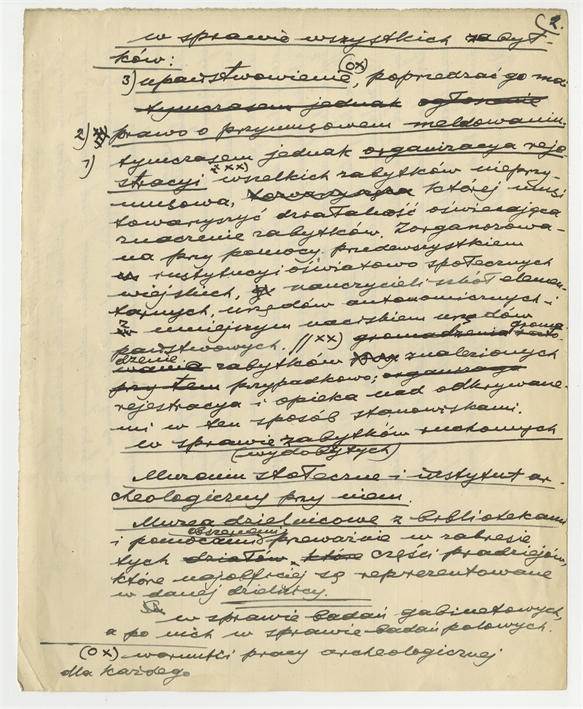 (2.
w sprawie wszystkich zabyt-
ków: (OX)
3) upaństwowienie, poprzedzać go ma
tymczasem jednak ogłoszenie
2) prawo o przymusowem meldowaniu
1) tymczasem jednak organizacja reje
stracyi xx) wszelkich zabytków nieprzy-
musowa, której musi
towarzyszyć działalność oświecająca
znaczenie zabytków. Zorganizowa-
na przy pomocy przedewszystkiem
instytucyi oświatowo społecznych
wiejskich, nauczycieli szkół elemen-
tarnych, urzędów autonomicznych i
z mniejszym naciskiem urzędów
państwowych. //xx) gromadzenia groma
dzenie zabytków znalezionych
przy tem przypadkowo;
rejestracja i opieka nad odkrywane-
mi w ten sposób stanowiskami.
w sprawie zabytków ruchomych
(wydobytych)
Muzeum stołeczne i instytut ar-
cheologiczny przy niem.
Muzea dzielnicowe z bibliotekami
i pomocami przeważnie w zakresie
tych działów, które części pradziejów,
które najobficiej są reprezentowane
w danej dzielnicy.
w sprawie badań gabinetowych,
a po nich w sprawie badań polowych.
(OX) warunki pracy archeologicznej
dla każdego